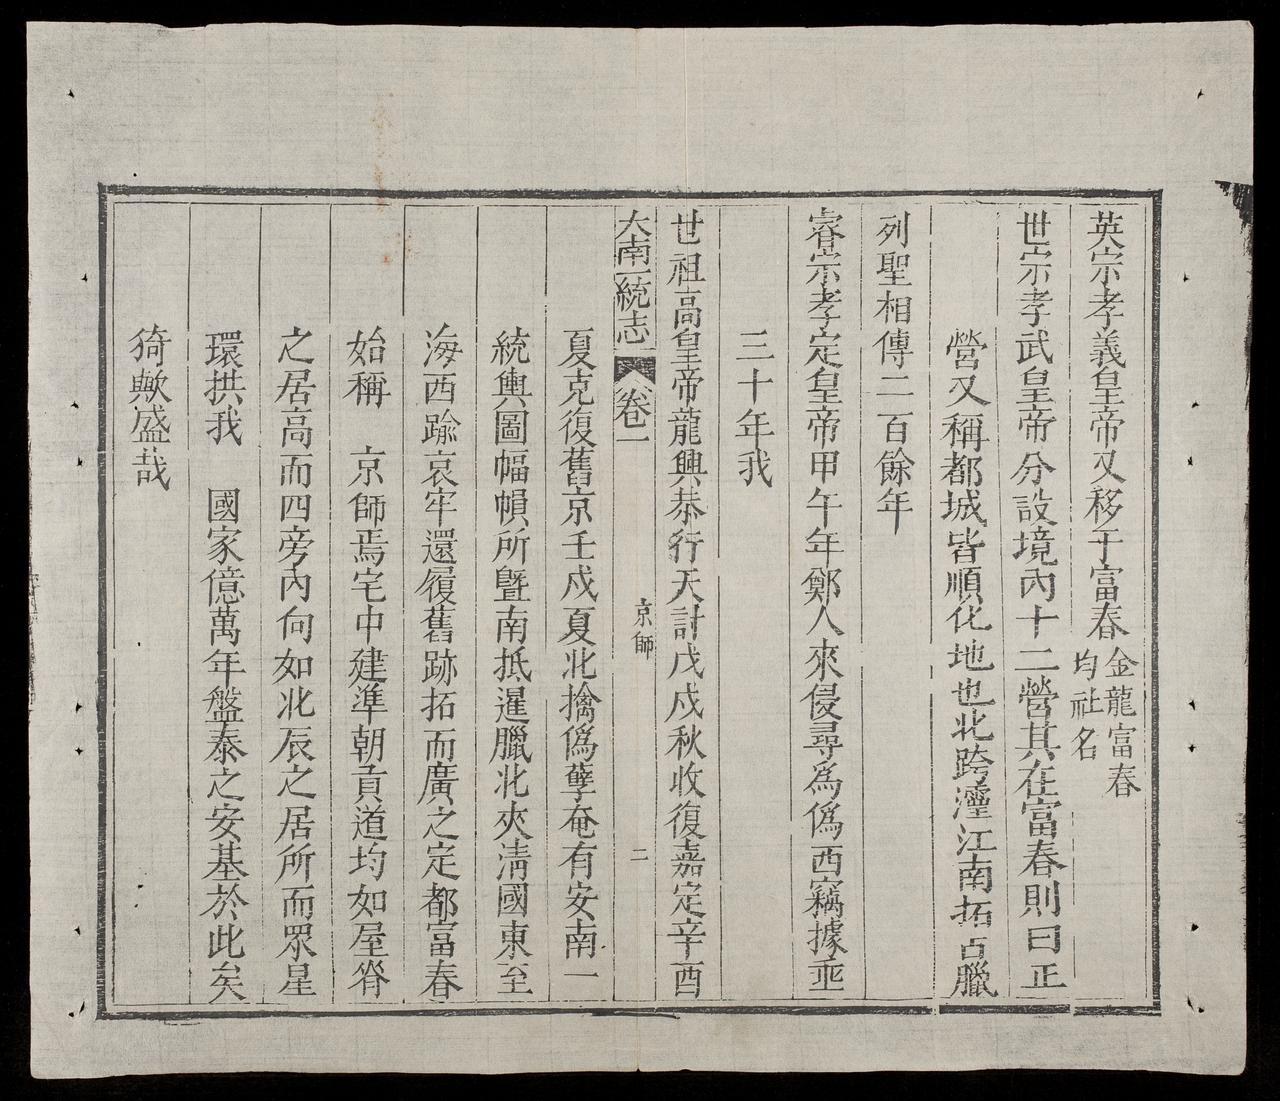 英宗孝義皇帝又移于富春金龍富春
均社名
世宗孝武皇帝分設境內十二營其在富春則曰正
營又稱都城皆順化地也北跨𤅷江南拓占臘
列聖相傳二百餘年
睿宗孝定皇帝甲午年鄭人來侵尋爲僞西竊據垂
三十年我
世祖高皇帝龍興恭行天討戊戌秋收復嘉定辛酉
大南一統志 卷一 京師 二
夏克復舊京壬戌夏北擒僞孽奄有安南一
統輿圖幅幀所曁南抵暹臘北夾淸國東至
海西踰哀牢還履舊跡拓而廣之定都富春
始稱 京師焉宅中建準朝貢道均如屋脊
之居高而四旁內向如北辰之居所而眾星
環拱我 國家億萬年盤泰之安基於此矣
猗歟盛哉